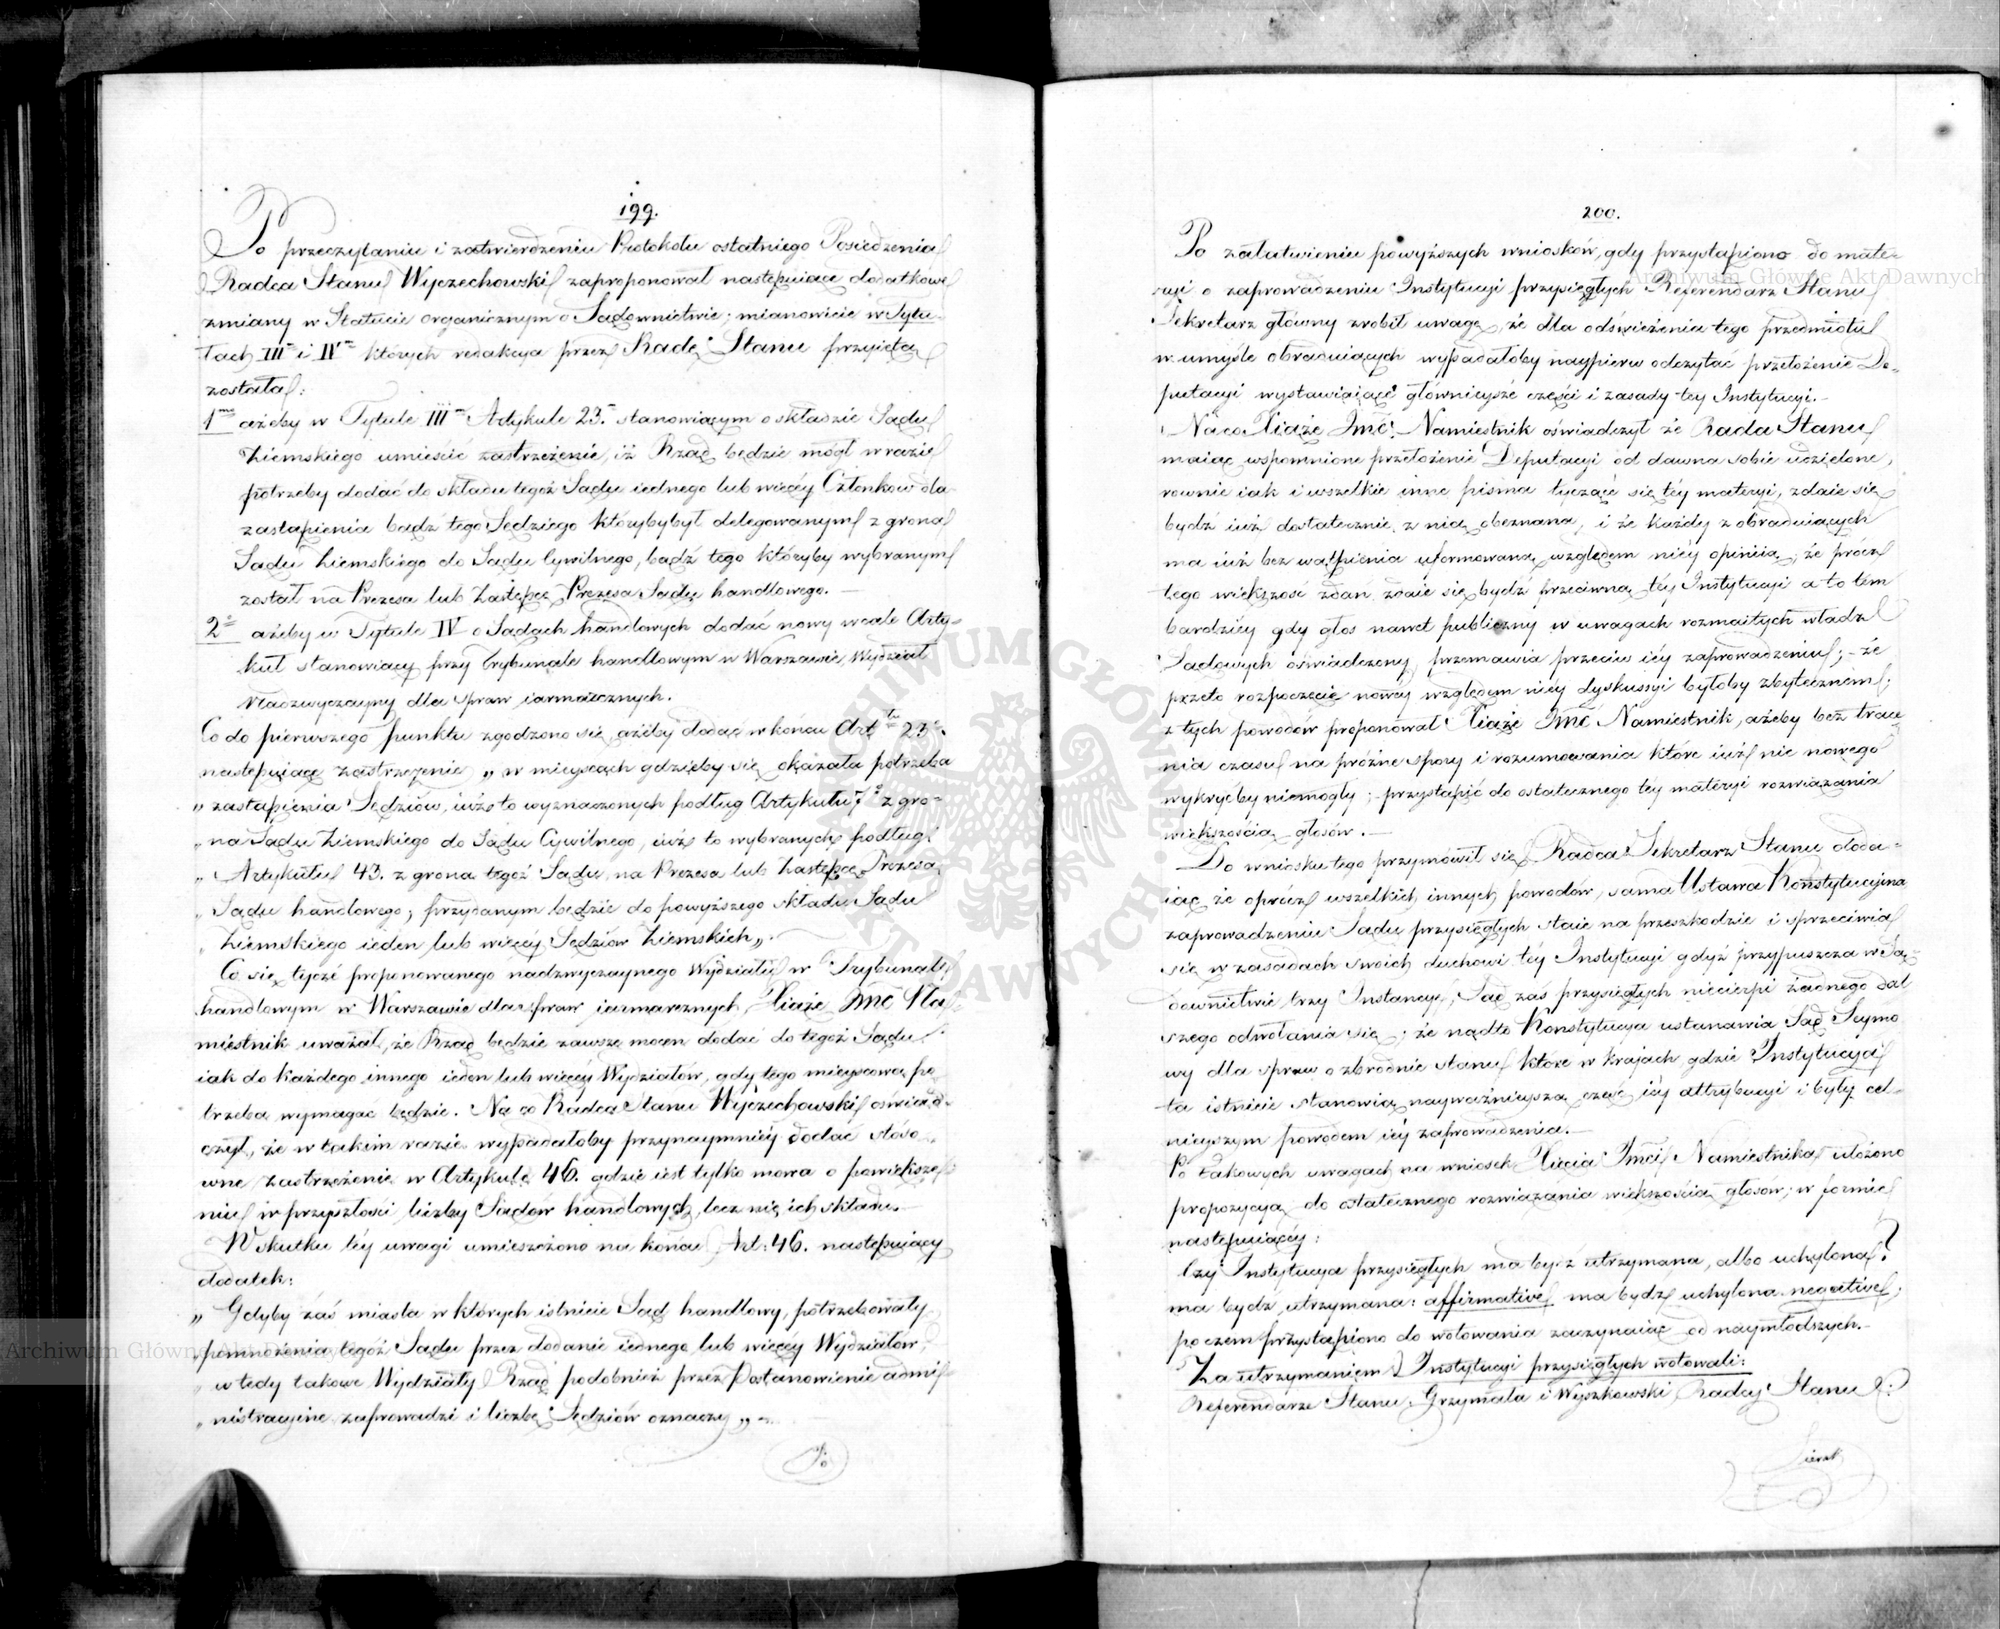 199.
Po przeczytaniu i zatwierdzeniu Protokołu ostatniego Posiedzenia
Radca Stanu Wyczechowski zaproponował następuiące dodatkowe
zmiany w Statucie organicznym o Sądownictwie; mianowicie w Tytu-
łach III i IV których redakcya przez Radę Stanu przyięta
została:
1mo ażeby w Tytule III Artykule 23. stanowiącym o składzie Sądu
Ziemskiego umieścić zastrzeżenie, iż Rząd będzie mógł w razie
potrzeby dodać do składu tegoż Sądu iednego lub więcéy Członków dla
zastąpienia bądź tego Sędziego któryby był delegowanym z grona
Sądu Ziemskiego do Sądu Cywilnego, bądź tego któryby wybranym
został na Prezesa lub Zastępcę Prezesa Sądu handlowego. —
2o ażeby w Tytule IV o Sądach handlowych dodać nowy wcale Arty-
kuł stanowiący przy Trybunale handlowym w Warszawie, Wydział
Nadzwyczayny dla spraw iarmarcznych.
Co do pierwszego punktu zgodzono się ażeby dodać w końcu Artłu 23o.
następuiące zastrzeżenie „w mieyscach gdzieby się okazała potrzeba
„ zastąpienia Sędziów, iużto wyznaczonych podług Artykułu 7o z gro-
„ na Sądu Ziemskiego do Sądu Cywilnego, iuż to wybranych podług
„ Artykułu 43. z grona tegoż Sądu, na Prezesa lub Zastępcę Prezesa
„ Sądu handlowego; przydanym będzie do powyższego składu Sądu
„ Ziemskiego ieden lub więcéy Sędziów Ziemskich„.
Co się tycze proponowanego nadzwyczaynego Wydziału w Trybunale
handlowym w Warszawie dla spraw iarmarcznych, Xiąże Jmć Na-
miestnik uważał, że Rząd będzie zawsze mocen dodać do tegoż Sądu
iak do każdego innego ieden lub więcéy Wydziałów, gdy tego mieyscowa po-
trzeba wymagać będzie. Na co Radca Stanu Wyczechowski oświad-
czył, że w takim razie wypadałoby przynaymniéy dodać stóso-
wne zastrzeżenie w Artykule 46. gdzie iest tylko mowa o powiększe-
niu w przyszłości liczby Sądów handlowych, lecz nie ich składu.
W skutku téy uwagi umieszczono na końcu Art: 46. następuiący
dodatek:
„ Gdyby zaś miasta w których istnieie Sąd handlowy, potrzebowały
„ pomnożenia tegóż Sądu przez dodanie iednego lub więcéy Wydziałów,
„ wtedy takowe Wydziały Rząd podobnież przez Postanowienie admi-
„ nistracyine zaprowadzi i liczbę Sędziów oznaczy „ —
Po
200.
Po załatwieniu powyższych wniosków, gdy przystąpiono do mate-
ryi o zaprowadzeniu Instytucyi przysięgłych Referendarz Stanu
Sekretarz główny zrobił uwagę, że dla odświeżenia tego przedmiotu
w umyśle obraduiących wypadałoby naypierw odczytać przełożenie De-
putacyi wystawiaiące głównieysze części i zasady tey Instytucyi.—
Na co Xiąże Jmć Namiestnik oświadczył że Rada Stanu
maiąc wspomnione przełożenie Deputacyi od dawna sobie udzielone,
rownie iak i wszelkie inne pisma tyczące się téy materyi, zdaie się
bydź iuż dostatecznie z nią obeznana, i że każdy z obraduiących
ma iuż bez wątpienia uformowaną względem niéy opiniią; że prócz
tego większość zdań zdaie się bydź przeciwną téy Instytucyi a to tem
bardziéy gdy głos nawet publiczny w uwagach rozmaitych władz
Sądowych oświadczony, przemawia przeciw iéy zaprowadzeniu; — że
przeto rozpoczęcie nowéy względem niéy dyskussyi byłoby zbytecznem;
z tych powodów proponował Xiąże Jmć Namiestnik, ażeby bez trace-
nia czasu na próżne spory i rozumowania które iuż nic nowego
wykryćby niemogły; przystąpić do ostatecznego téy materyi rozwiązania
większością głosów. —
Do wniosku tego przymówił się Radca Sekretarz Stanu doda-
iąc że oprócz wszelkich innych powodów, sama Ustawa Konstytucyina
zaprowadzeniu Sądu przysięgłych staie na przeszkodzie i sprzeciwia
się w zasadach swoich duchowi téy Instytucyi gdyż przypuszcza w Są-
downictwie trzy Instancye, Sąd zaś przysięgłych niecierpi żadnego dal
szego odwołania się; że nadto Konstytucya ustanawia Sąd Seymo
wy dla spraw o zbrodnie stanu które w krajach gdzie Instytucya
ta istnieie stanowią nayważnieyszą część iéy attrybucyi i były cel-
nieyszym powodem iéy zaprowadzenia.—
Po takowych uwagach na wniosek Xięcia Jmci Namiestnika ułożono
propozycyą do ostatecznego rozwiązania większością głosow; w formie
następuiącéy:
Czy Instytucya przysięgłych ma bydź utrzymana, albo uchylona?
ma bydź utrzymana: affirmative, ma bydź uchylona negative;
poczem przystąpiono do wotowania zaczynaiąc od naymłodszych.—
Za utrzymaniem Instytucyi przysięgłych wotowali:
Referendarze Stanu, Grzymała i Wyszkowski, Radcy Stanu
Sierak